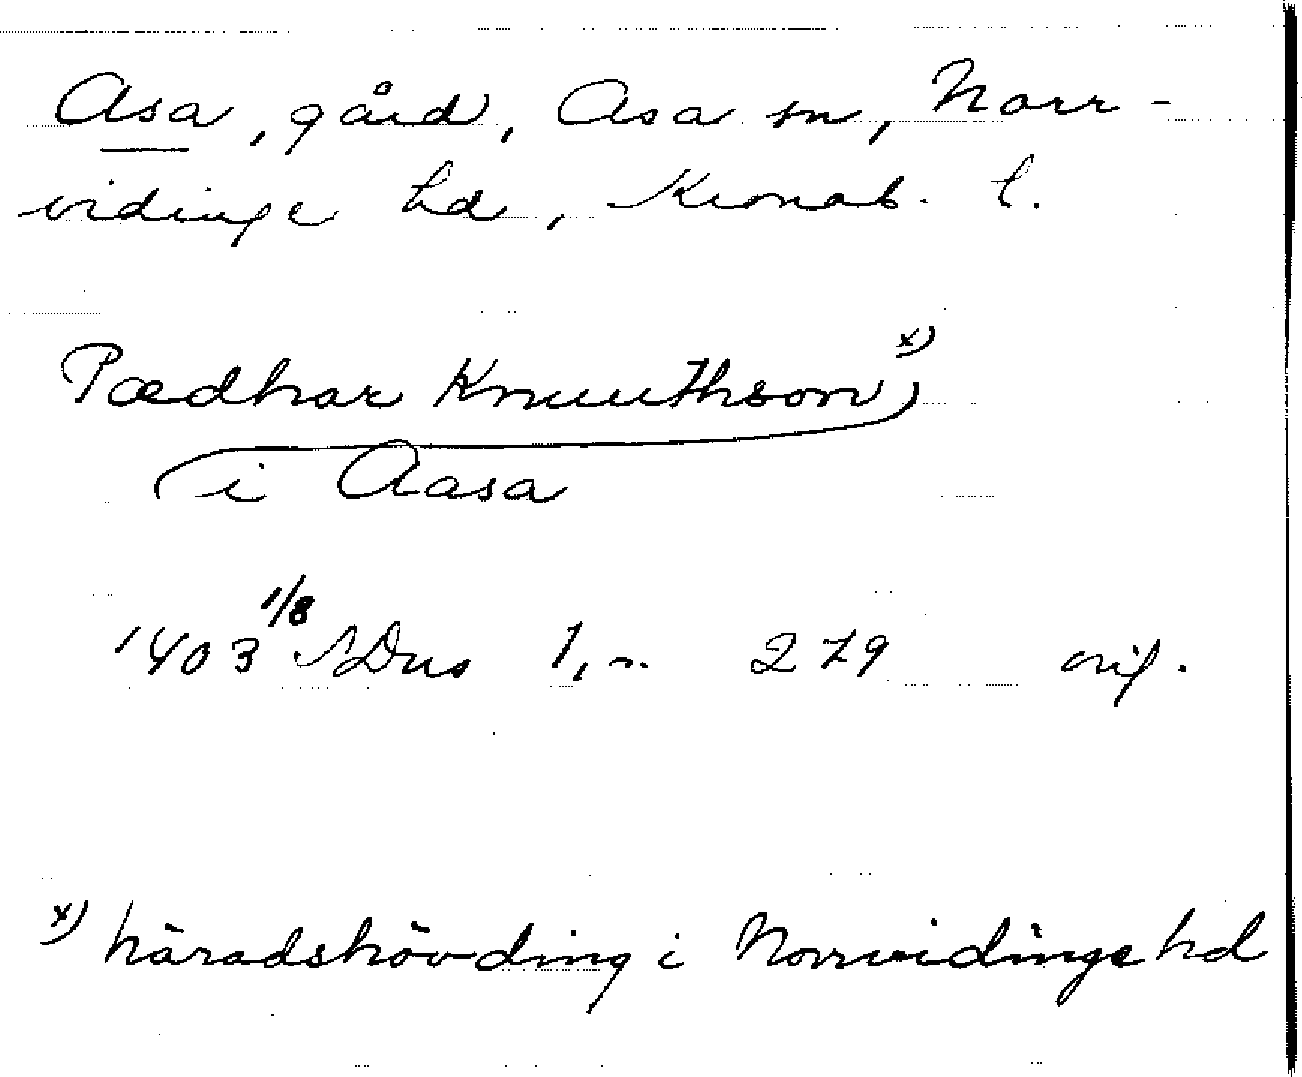 Asa, gård, Asa sn, Norr-
vidinge hd, Kronob. l.
Pædhar Knuuthson x)
i Aasa
1403 1/8 SDns 1, n. 279 orig.
x) häradshövding i Norrvidinge hd